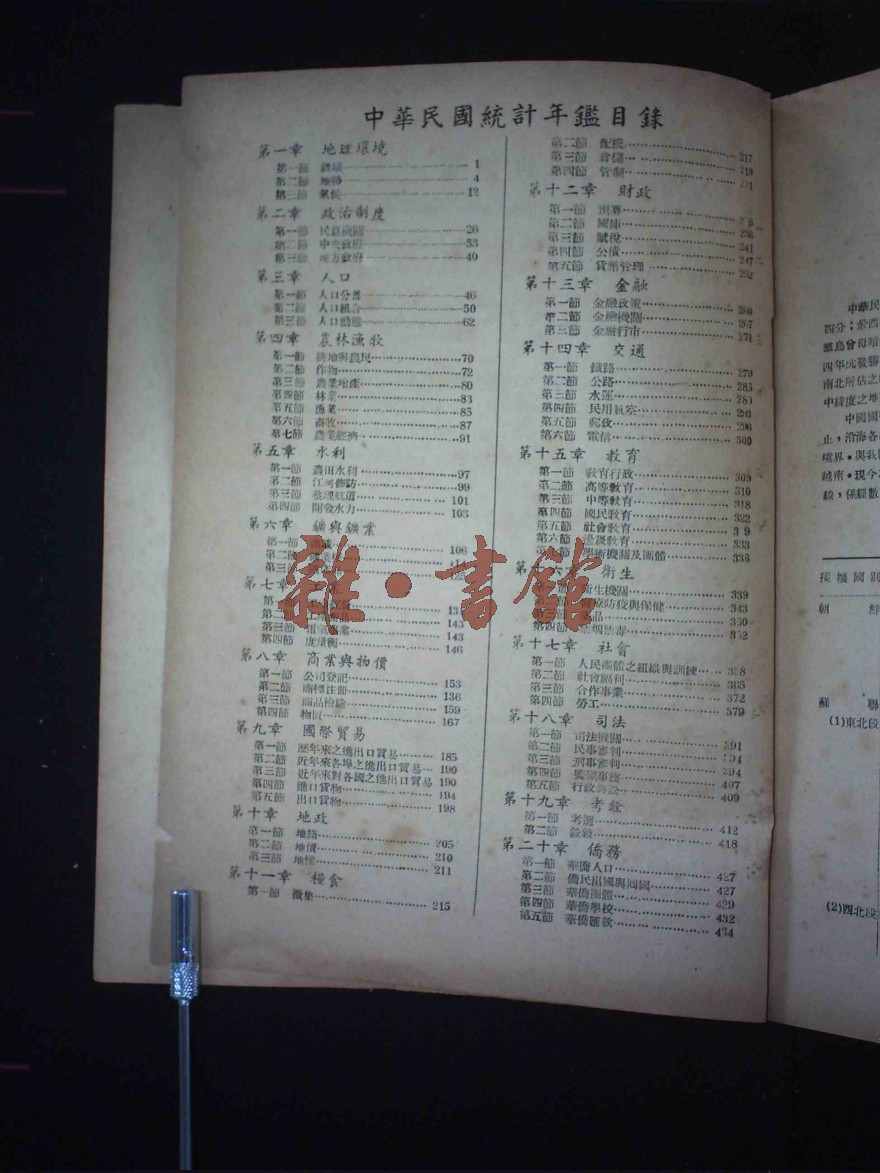 中華民國統計年鑑目錄
第一章 地理環境
第一節 疆域 1
第二節 地勢 4
第三節 氣候 12
第二章 政治制度
第一節 民意機關 26
第二節 中央政府 33
第三節 地方政府 40
第三章 人口
第一節 人口分佈 46
第二節 人口組合 50
第三節 人口動態 62
第四章 農林漁牧
第一節 耕地與農民 70
第二節 作物 72
第三節 農業增產 80
第四節 林業 83
第五節 漁業 85
第六節 畜牧 87
第七節 農業經濟 91
第五章 水利
第一節 農田水利 97
第二節 江河修防 99
第三節 整理航道 101
第四節 開發水力 103
第六章 鑛與鑛業
第一節 106
第二節
第三節
第七章
第一節
第二節 143
第三節 143
第四節 度量衡 146
第八章 商業與物價
第一節 公司登記 153
第二節 商標註冊 136
第三節 商品檢驗 159
第四節 物價 167
第九章 國際貿易
第一節 歷年來之進出口貿易 185
第二節 近年來各埠之進出口貿易 190
第三節 近年來對各國之進出口貿易 190
第四節 進口貨物 194
第五節 出口貨物 198
第十章 地政
第一節 地籍 205
第二節 地價 210
第三節 地權 211
第十一章 糧食
第一節 徵集 215
第二節 配撥 217
第三節 倉儲 218
第四節 管制
第十二章 財政
第一節 預算
第二節 國庫 236
第三節 賦稅 241
第四節 公債 247
第五節 貨幣管理 252
第十三章 金融
第一節 金融政策 260
第二節 金融機關 267
第三節 金融行市 271
第十四章 交通
第一節 鐵路 279
第二節 公路 285
第三節 水運
第四節 民用航空
第五節 郵政 296
第六節 電信 300
第十五章 教育
第一節 教育行政 309
第二節 高等教育 310
第三節 中等教育 318
第四節 國民教育 322
第五節 社會教育
第六節 邊疆教育 333
第七節 學術機關及團體 336
第十六章 衛生
第一節 衛生機關 339
第二節 醫療防疫與保健 343
第三節 350
第四節 禁烟禁毒 352
第十七章 社會
第一節 人民團體之組織與訓練
第二節 社會福利 365
第三節 合作事業 372
第四節 勞工 379
第十八章 司法
第一節 司法機關 391
第二節 民事審判 394
第三節 刑事審判 394
第四節 監獄事務 407
第五節 行政訴訟 409
第十九章 考銓
第一節 考選 412
第二節 銓敍 418
第二十章 僑務
第一節 華僑人口 427
第二節 僑民出國與回國 427
第三節 華僑團體 429
第四節 華僑學校 432
第五節 華僑匯款 434
雜·書館
中華民
四分；
四年抗戰勝
南北所佔之
中緯度之地
中國國
止，沿海各
境界，與我
越南。現今
線，係經數
接壤國別
朝鮮
蘇聯
(1)東北段
(2)西北段